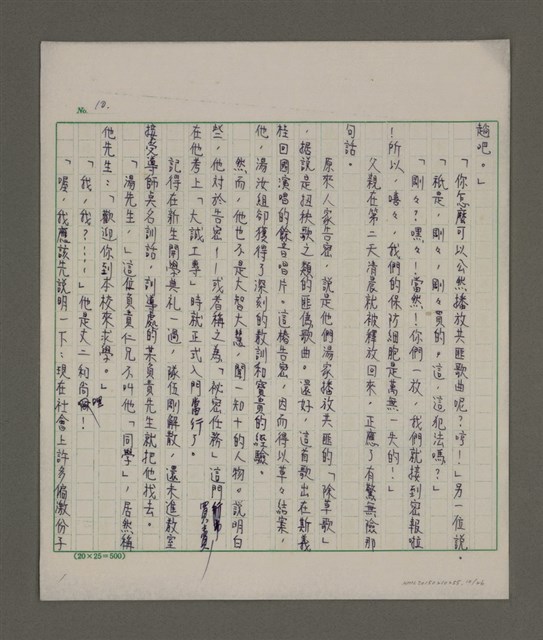 No. 18.
趟吧。」
「你怎麼可以公然播放共匪歌曲呢？哼！」另一位說。
「秖是，剛々，剛々買的，這，這犯法嗎？」
「剛々？嘿々！當然！你們一放，我們就接到密報啦
！所以，嘻々，我們的保防細胞是萬無一失的！」
父親在第二天清晨就被釋放回來，正應了有驚無險那
句話。
原來人家告密，說是他們湯家播放共匪的「除草歌」
，據說是扭秧歌之類的匪偽歌曲。還好，這首歌出在斯義
桂回國演唱的錄音唱片。這樁告密，因而得以草々結案，
他，湯汝組卻獲得了深刻的教訓和寶貴的經驗。
然而，他也不是大智大慧，聞一知十的人物。說明白
些，他對於告密——或者稱之為「秘密任務」這門買賣
在他考上「大誠工專」時就正式入門當行了。
記得在新生開學典礼一過，隊伍剛解散，還未進教室
接受導師莫名訓話，訓導處的某負責先生就把他找去。
「湯先生，」這位負責仁兄不叫他「同學」，居然稱
他先生：「歡迎你到本校來求學。」
「我，我？……」他是丈二和尚哩！
「喔，我應該先說明一下：現在社會上許多偏激份子
(20×25=500)